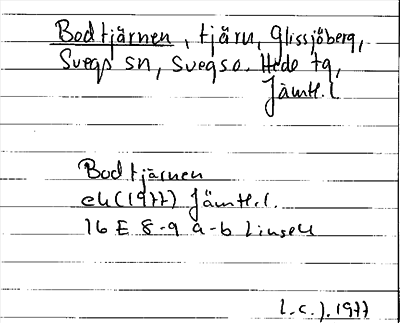 Bodtjärnen, tjärn, Glissjöberg,
Svegs sn, Svegs o. Hede tg,
Jämtl. l
Bodtjärnen
ek (1977) Jämtl. l.
16 E 8-9 a-b Linsell
L.C.J. 1977